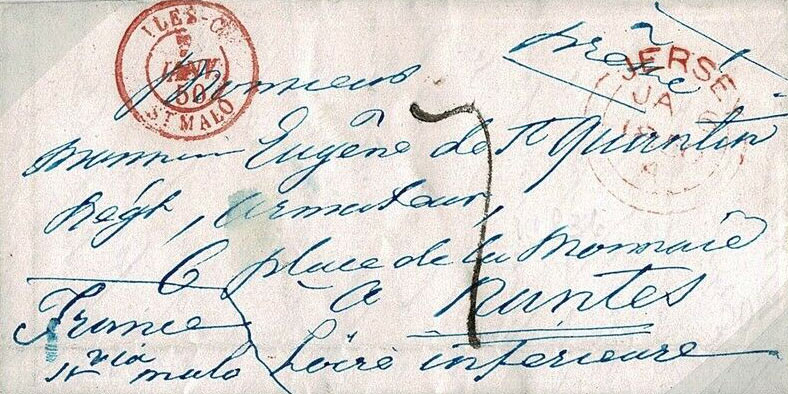 ILES-C
JANV.
50
ST MALO
JERSEY
JA
1850
france
Monsieur
Monsieur Eugène de St Quentin
Négt, armateur,
6 place de la Monnaie
à Nantes
7
Loire inférieure
France
via
St malo